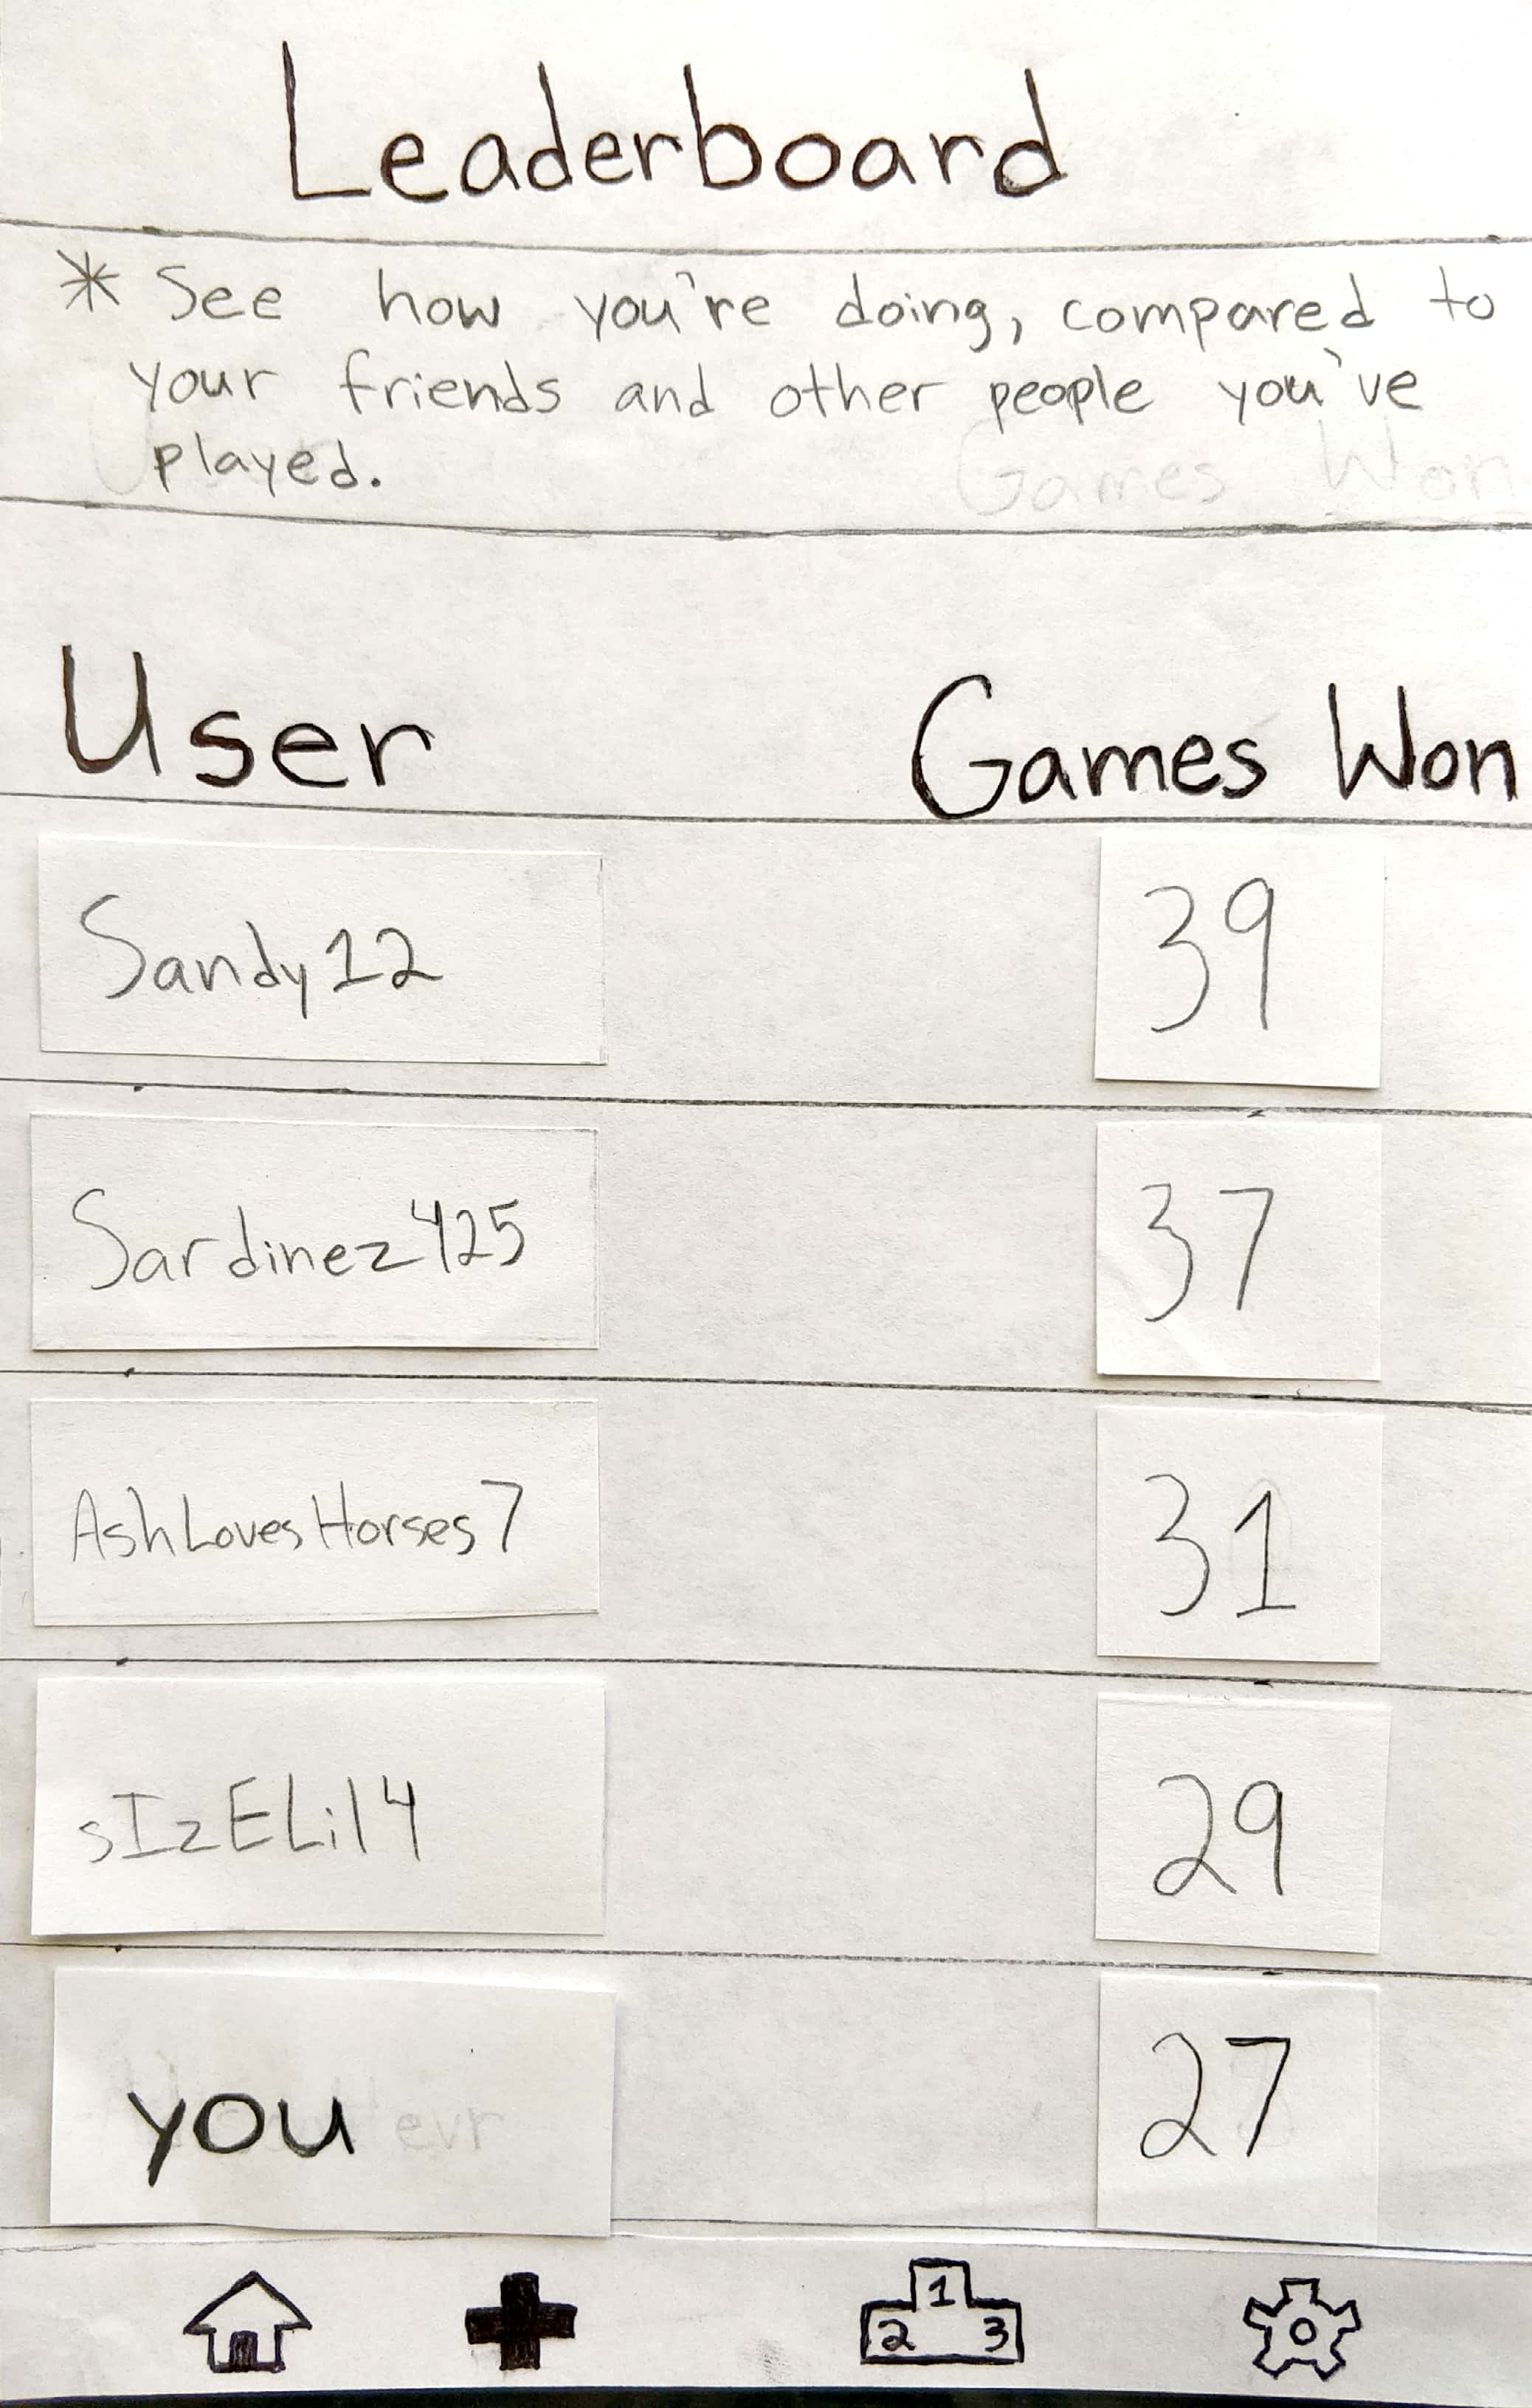 Leaderboard
* See how you're doing, compared to
your friends and other people you've
played.
Games Won
User Games Won
Sandy12 39
Sardinez425 37
AshLovesHorses7 31
sIzELil4 29
you evr 27
1
2 3